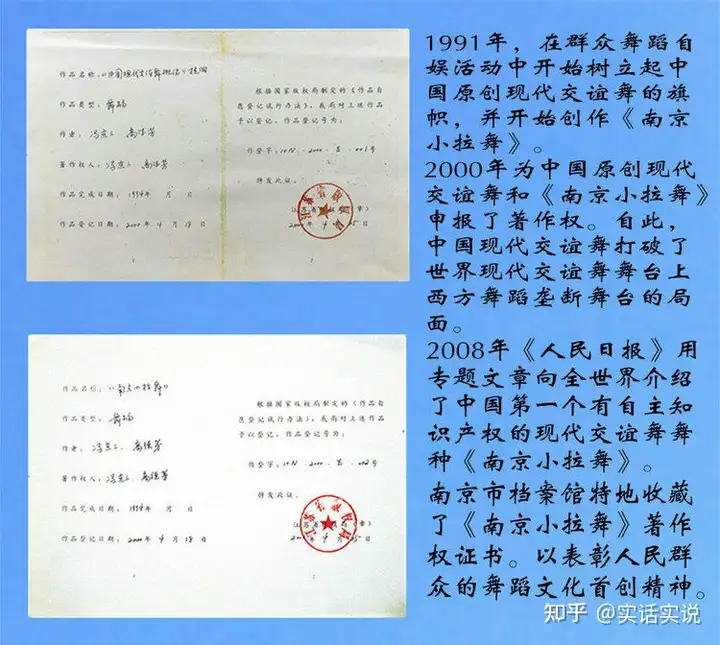 作品名称:《中国现代交谊舞概论》提纲
作品类型: 舞蹈
作者:
著作权人:
作品完成日期: 1994年 月 日
作品登记日期: 2000年 4 月 18 日
1
根据国家版权局制定的《作品自
愿登记试行办法》,我局对上述作品
予以登记,作品登记号为:
作登字: 10-N-2000-第-001号
特发此证。
江苏省版权局(章)
2000年 4 月 25 日
2
作品名称:《南京小拉舞》
作品类型: 舞蹈
作者:
著作权人:
作品完成日期: 1994年 月 日
作品登记日期: 2000年 4 月 18 日
1
根据国家版权局制定的《作品自
愿登记试行办法》,我局对上述作品
予以登记,作品登记号为:
作登字: 10-N-2000-第-002号
特发此证。
江苏省版权局(章)
2000年 4 月 25 日
2
1991年,在群众舞蹈自
娱活动中开始树立起中
国原创现代交谊舞的旗
帜,并开始创作《南京
小拉舞》。
2000年为中国原创现代
交谊舞和《南京小拉舞》
申报了著作权。自此,
中国现代交谊舞打破了
世界现代交谊舞舞台上
西方舞蹈垄断舞台的局
面。
2008年《人民日报》用
专题文章向全世界介绍
了中国第一个有自主知
识产权的现代交谊舞舞
种《南京小拉舞》。
南京市档案馆特地收藏
了《南京小拉舞》著作
权证书。以表彰人民群
众的舞蹈文化首创精神。
知乎 @实话实说